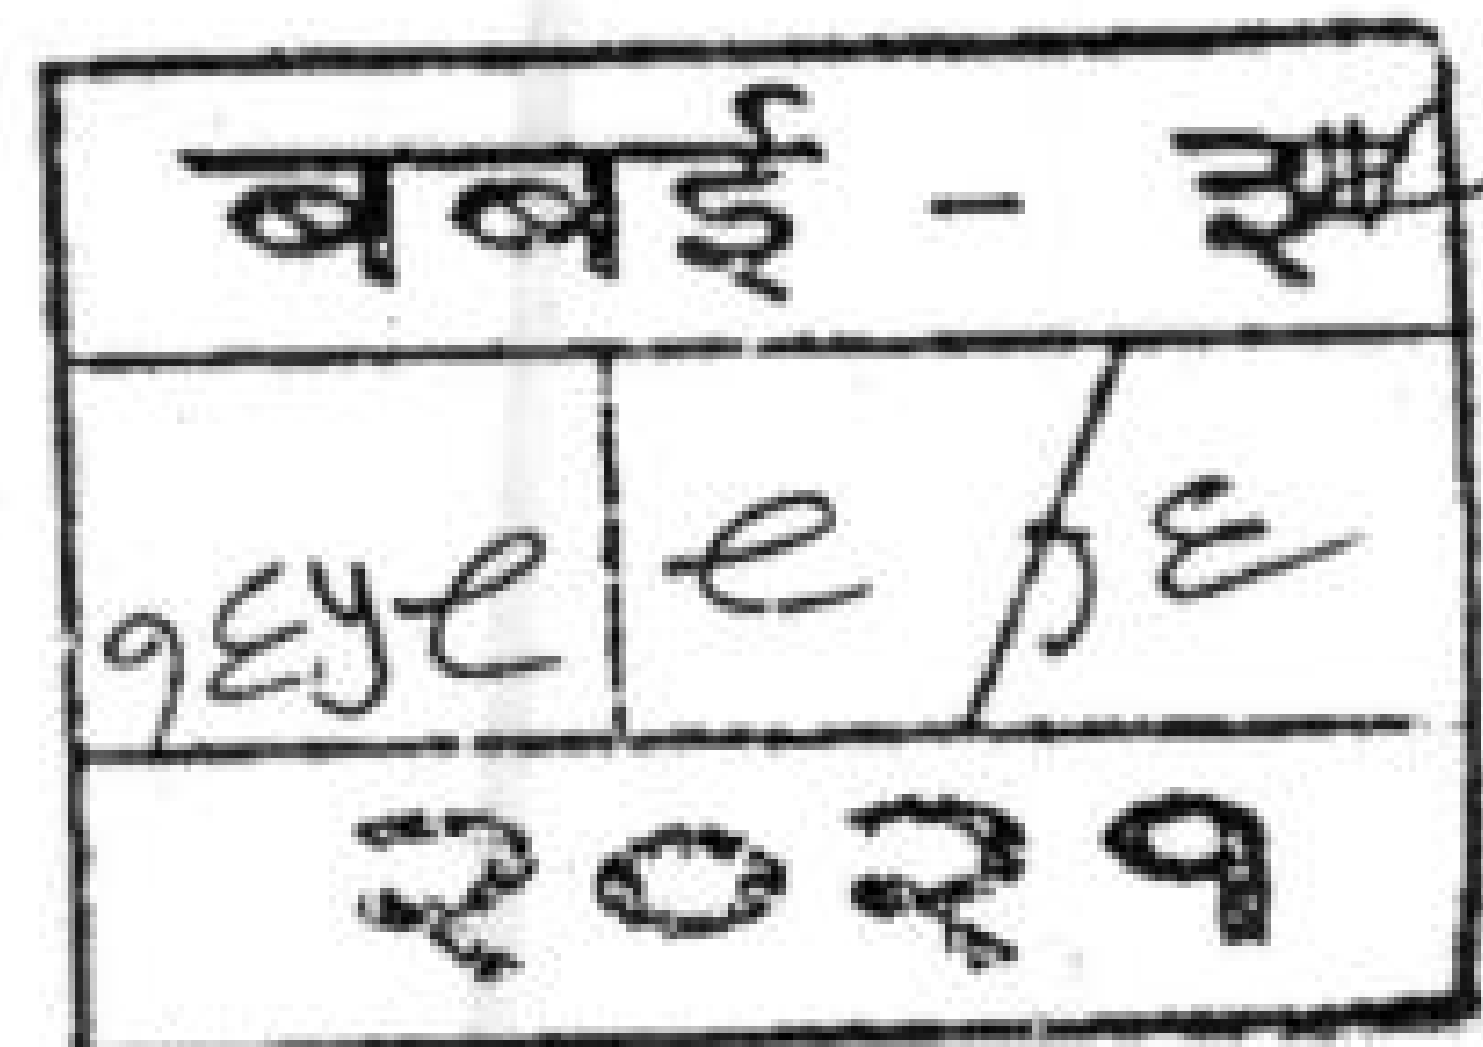 बबई -
१६५९ ९ / १६
२०२१